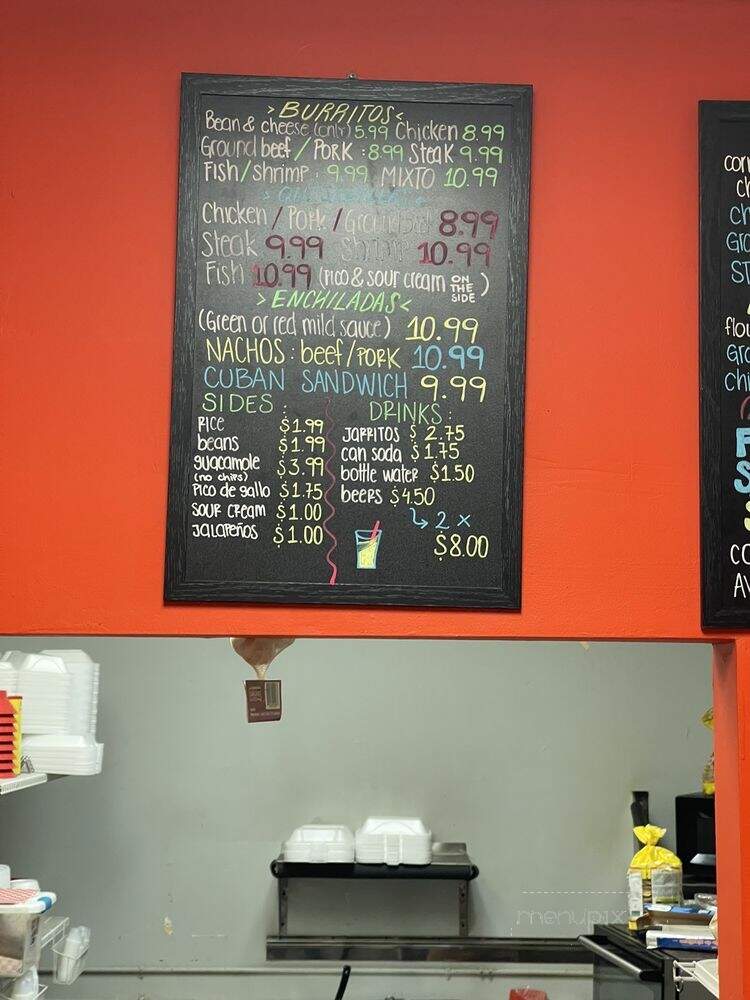 > BURRITOS <
Bean & cheese (only) 5.99 Chicken 8.99
Ground beef / PORK : 8.99 Steak 9.99
Fish/shrimp : 9.99 MIXTO 10.99
Chicken / Pork / Ground Beef 8.99
Steak 9.99 Shrimp 10.99
Fish 10.99 (PICO & SOUR CREAM ON THE SIDE)
> ENCHILADAS <
(Green or red mild sauce) 10.99
NACHOS : beef/PORK 10.99
CUBAN SANDWICH 9.99
SIDES :
RICE $1.99
beans $1.99
guacamole $3.99
(no chips)
Pico de gallo $1.75
SOUR CREAM $1.00
JALAPEÑOS $1.00
DRINKS :
JARRITOS $2.75
can soda $1.75
bottle water $1.50
beers $4.50
2 x
$8.00
menupix